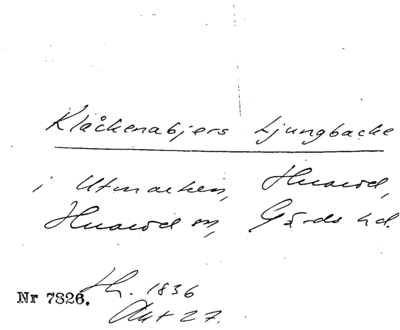 Klåckenabjers Ljungbacke
i Utmarken, Huaröd,
Huaröd sn, Gärds hd.
Nr 7326. H. 1836
Akt 27.